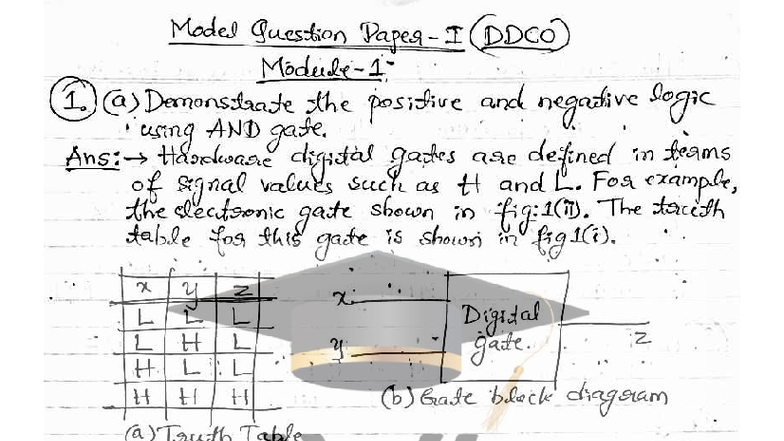 Model Question Paper-I (DDCO)
Module-1:
1. (a) Demonstrate the positive and negative logic
using AND gate.
Ans:→ Hardware digital gates are defined in terms
of signal values such as H and L. For example,
the electronic gate shown in fig:1(ii). The truth
table for this gate is shown in fig 1(i).
x y z
L L L
L H L
H L L
H H H
x
y
Digital
gate.
z
(b) Gate block diagram
(a) Truth Table